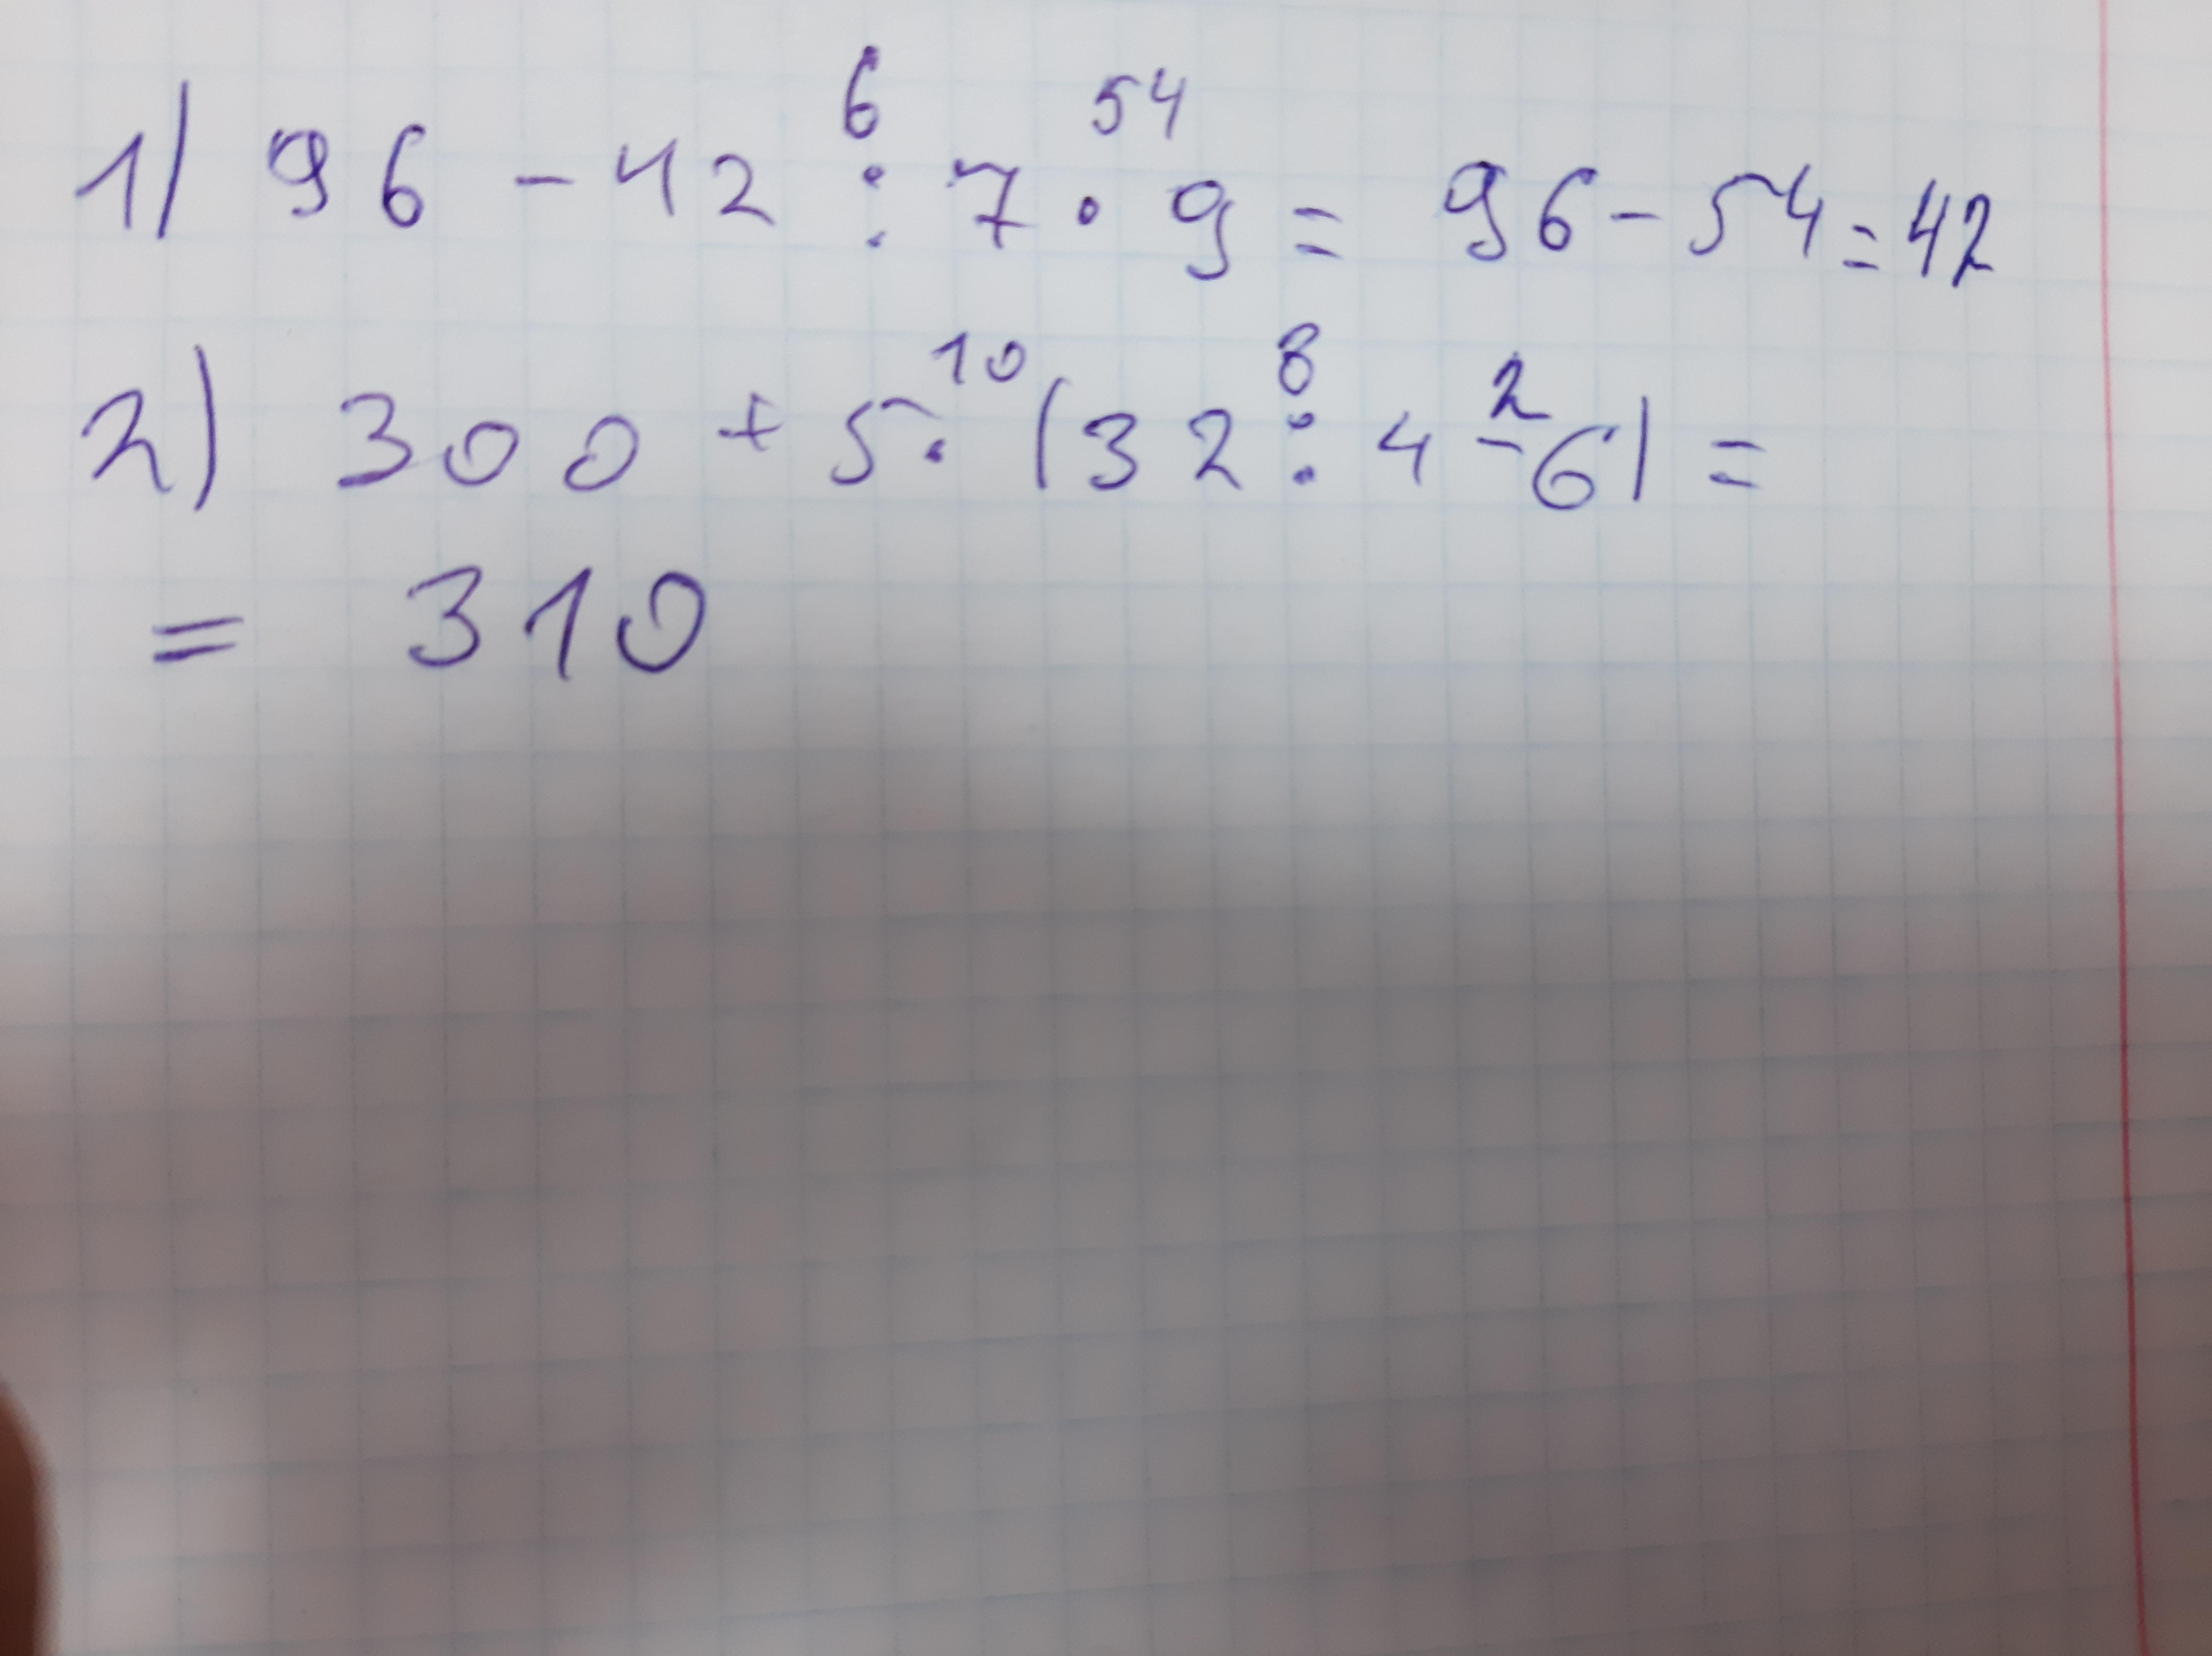 6 54
1) 96 - 42 : 7 · 9 = 96 - 54 = 42
10 8 2
2) 300 + 5 · (32 : 4 - 6) =
= 310